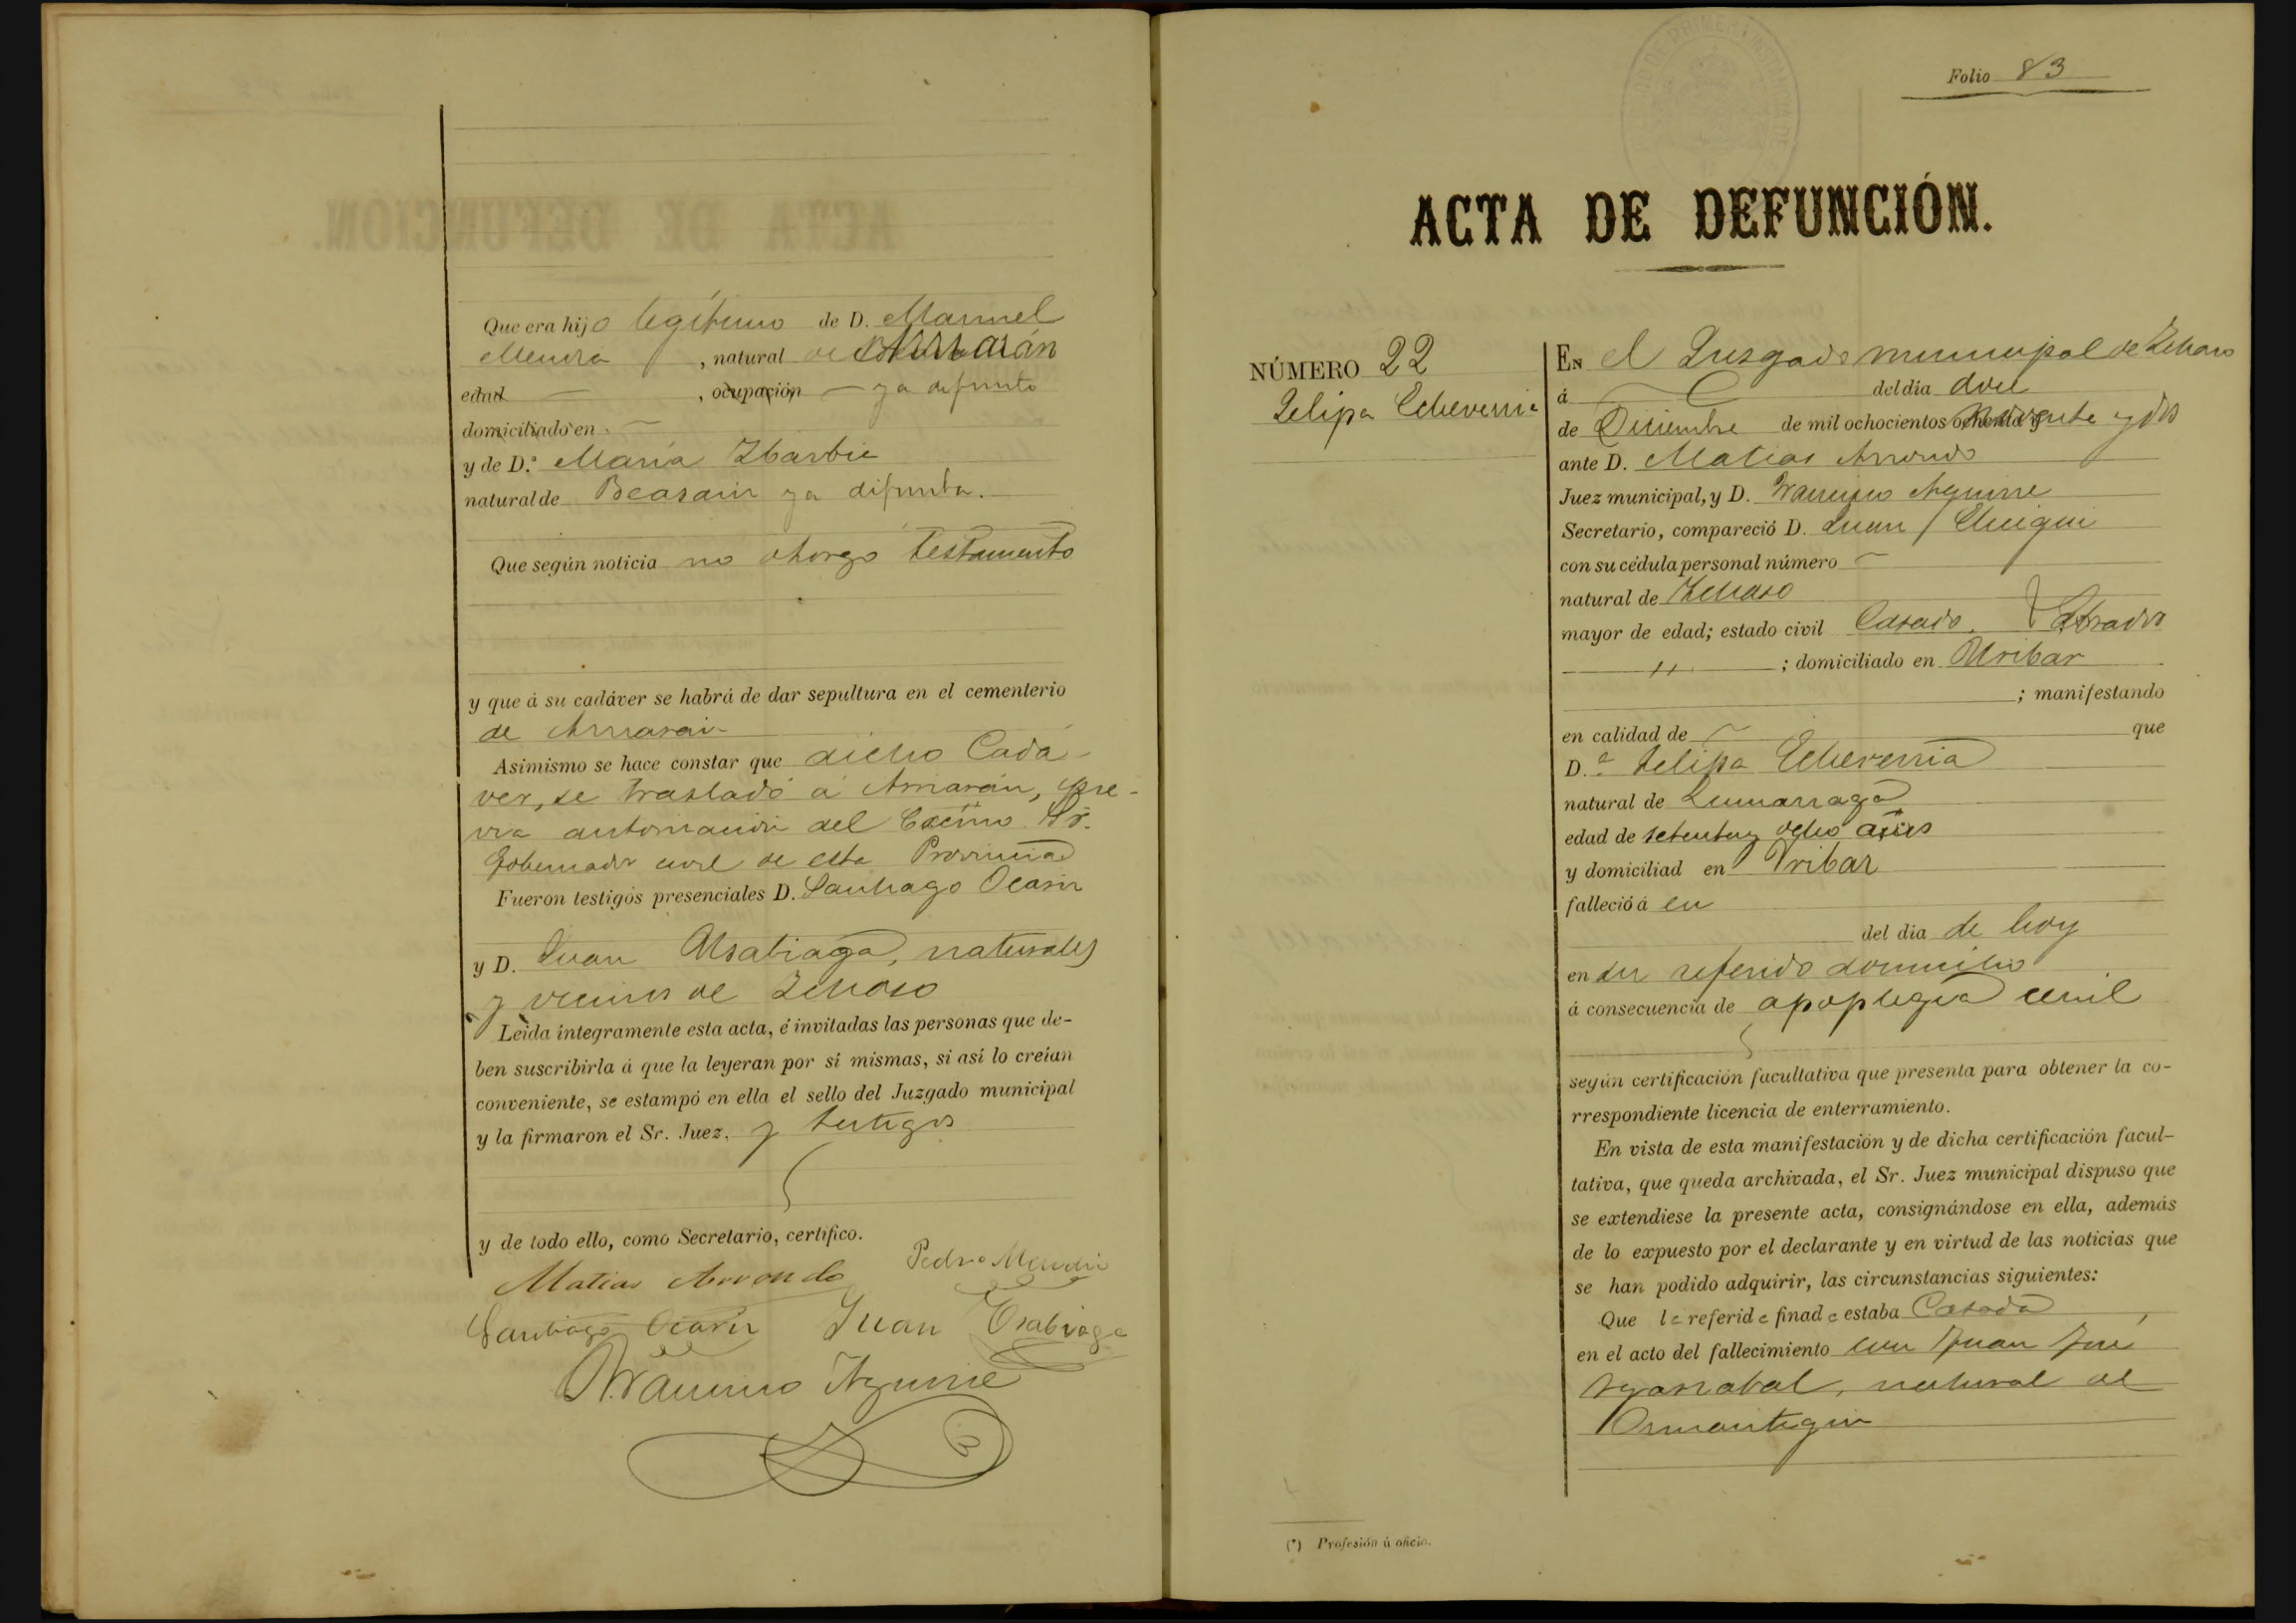 Que era hijo legítimo de D. Manuel
Mendia, natural de Arriarán
edad — , ocupación — ya difunto
domiciliado en —
y de D.ª María Ybarbie
natural de Beasain ya difunta.
Que según noticia no otorgo testamento
y que á su cadáver se habrá de dar sepultura en el cementerio
de Arriarain
Asimismo se hace constar que dicho Cada-
ver, se trasladó á Arriarán, pre-
via autorización del Excmo Sr.
Gobernador civil de esta Provincia
Fueron testigos presenciales D. Santiago Ocariz
y D. Juan Usabiaga, naturales
y vecinos de Ichaso
Leida íntegramente esta acta, é invitadas las personas que de-
ben suscribirla á que la leyeran por sí mismas, si así lo creían
conveniente, se estampó en ella el sello del Juzgado municipal
y la firmaron el Sr. Juez, y testigos
y de todo ello, como Secretario, certifico.
Matias Arrondo Pedro Mendia
Santiago Ocariz Juan Usabiaga
Francisco Aguirre
Folio 83
ACTA DE DEFUNCIÓN.
NÚMERO 22
Felipa Echeverria
En el Jusgado municipal de Ichaso
á — del día doce
de Diciembre de mil ochocientos noventa y dos
ante D. Matias Arrondo
Juez municipal, y D. Francisco Aguirre
Secretario, compareció D. Juan
con su cédula personal número —
natural de Ichaso
mayor de edad; estado civil Casado, Labrador
— " — ; domiciliado en Uribar
; manifestando
en calidad de — que
D.ª Felipa Echeverria
natural de Zumarraga
edad de setenta y ocho años
y domiciliad en Uribar
falleció á en
del dia de hoy
en su referido domicilio
á consecuencia de apoplegia senil
según certificación facultativa que presenta para obtener la co-
rrespondiente licencia de enterramiento.
En vista de esta manifestación y de dicha certificación facul-
tativa, que queda archivada, el Sr. Juez municipal dispuso que
se extendiese la presente acta, consignándose en ella, además
de lo expuesto por el declarante y en virtud de las noticias que
se han podido adquirir, las circunstancias siguientes:
Que la referida finada estaba Casada,
en el acto del fallecimiento con Juan José
Ygarzabal, natural de
Ormaiztegui
(*) Profesión ú oficio.